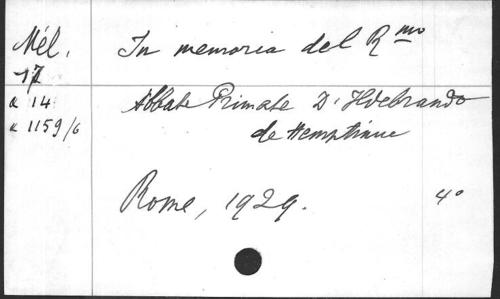 Mél. In memoria del Rmo
17
a 14 Abbate Primate D. Ildebrando
a 1159/6 de Hemptinne
Rome, 1929. 4°